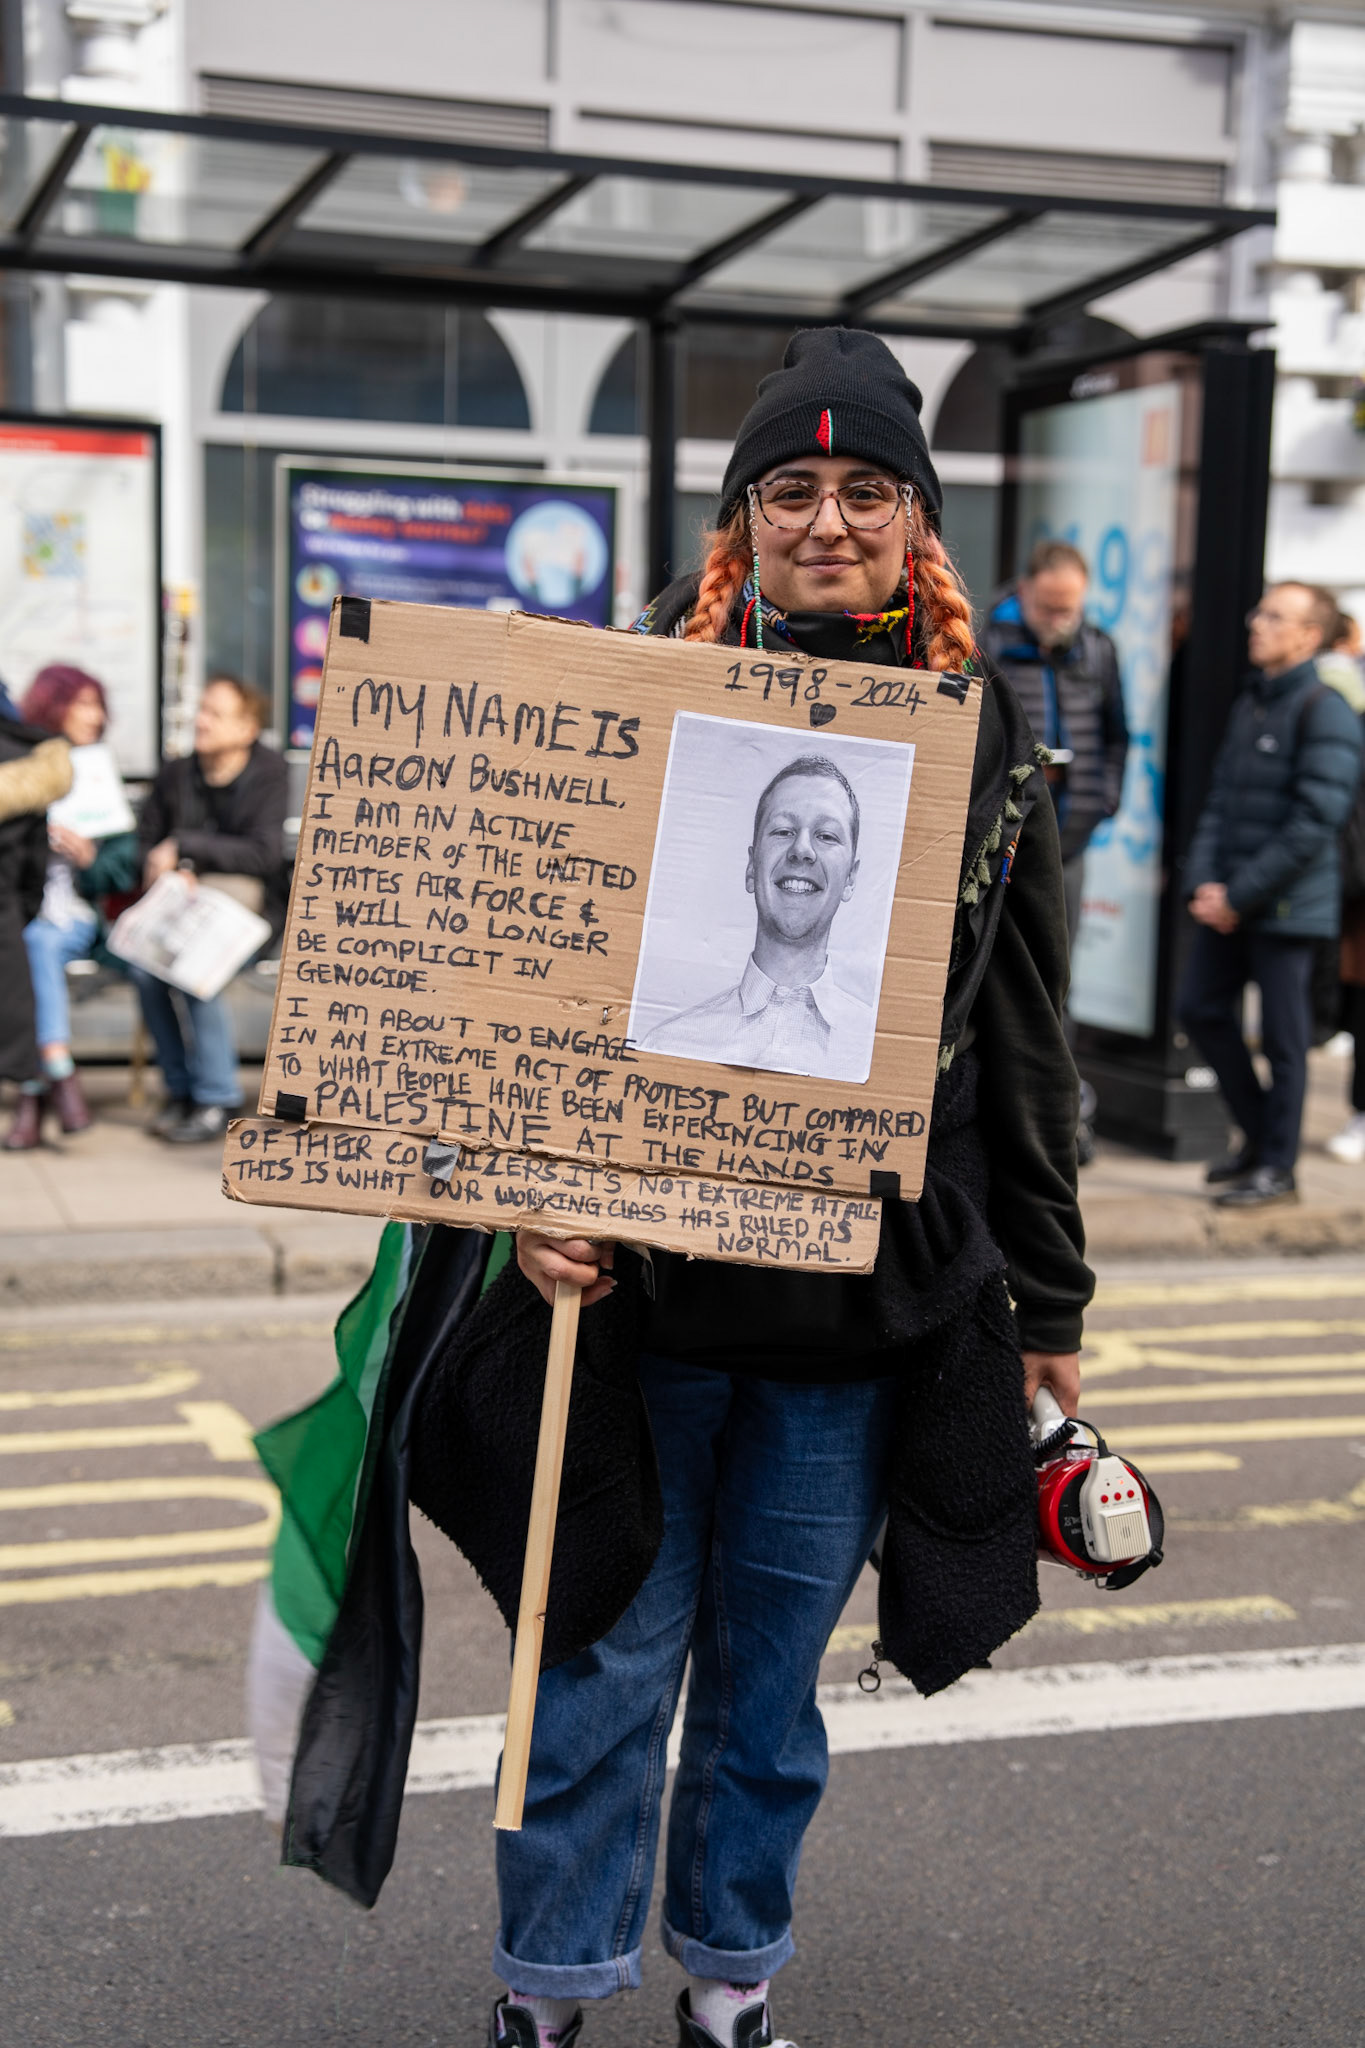 Struggling with debt
or money worries?
1998-2024
"MY NAME IS
AARON BUSHNELL.
I AM AN ACTIVE
MEMBER of THE UNITED
STATES AIR FORCE &
I WILL NO LONGER
BE COMPLICIT IN
GENOCIDE.
I AM ABOUT TO ENGAGE
IN AN EXTREME ACT OF PROTEST BUT COMPARED
TO WHAT PEOPLE HAVE BEEN EXPERINCING IN
PALESTINE AT THE HANDS
OF THEIR CO NIZERS, IT'S NOT EXTREME AT ALL-
THIS IS WHAT OUR WORKING CLASS HAS RULED AS
NORMAL.